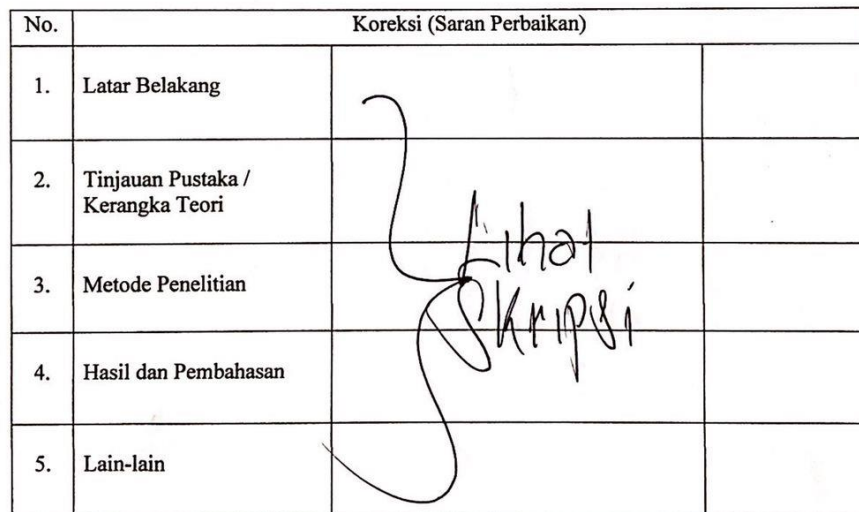 No. Koreksi (Saran Perbaikan)
1. Latar Belakang
2. Tinjauan Pustaka /
Kerangka Teori
Lihat
3. Metode Penelitian
Skripsi
4. Hasil dan Pembahasan
5. Lain-lain